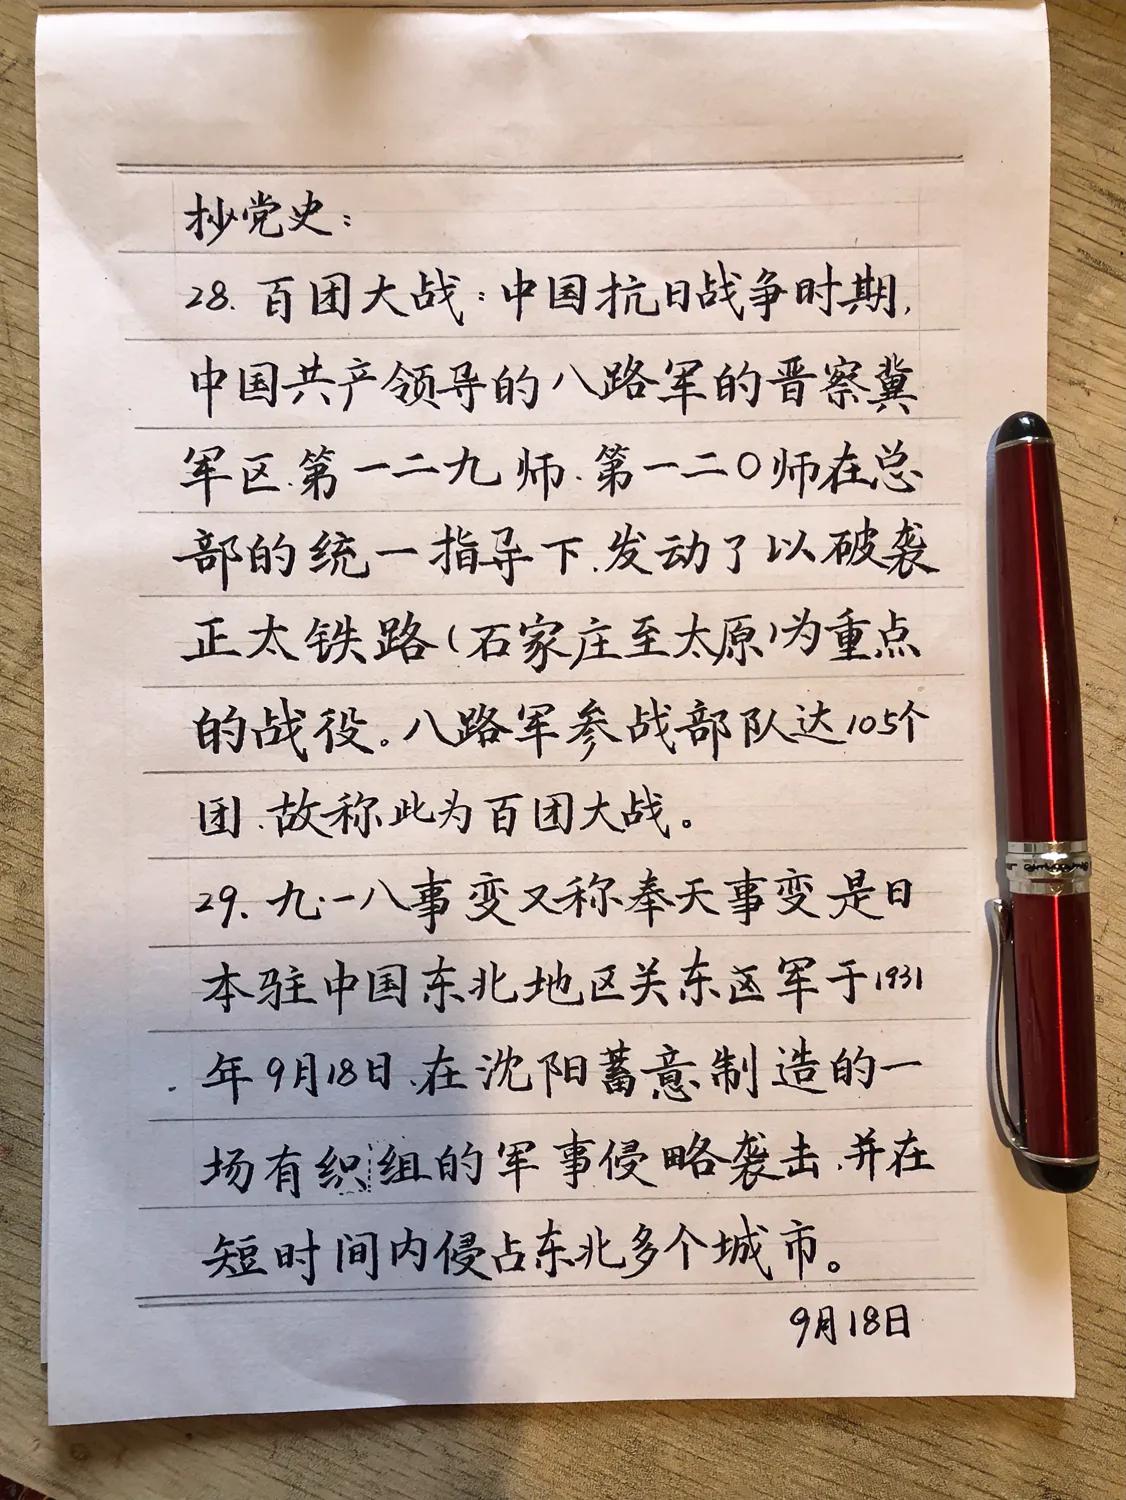 抄党史：
28. 百团大战：中国抗日战争时期，
中国共产领导的八路军的晋察冀
军区、第一二九师、第一二〇师在总
部的统一指导下、发动了以破袭
正太铁路（石家庄至太原）为重点
的战役。八路军参战部队达105个
团、故称此为百团大战。
29、九·一八事变又称奉天事变是日
本驻中国东北地区关东区军于1931
年9月18日、在沈阳蓄意制造的一
场有织组的军事侵略袭击、并在
短时间内侵占东北多个城市。
9月18日